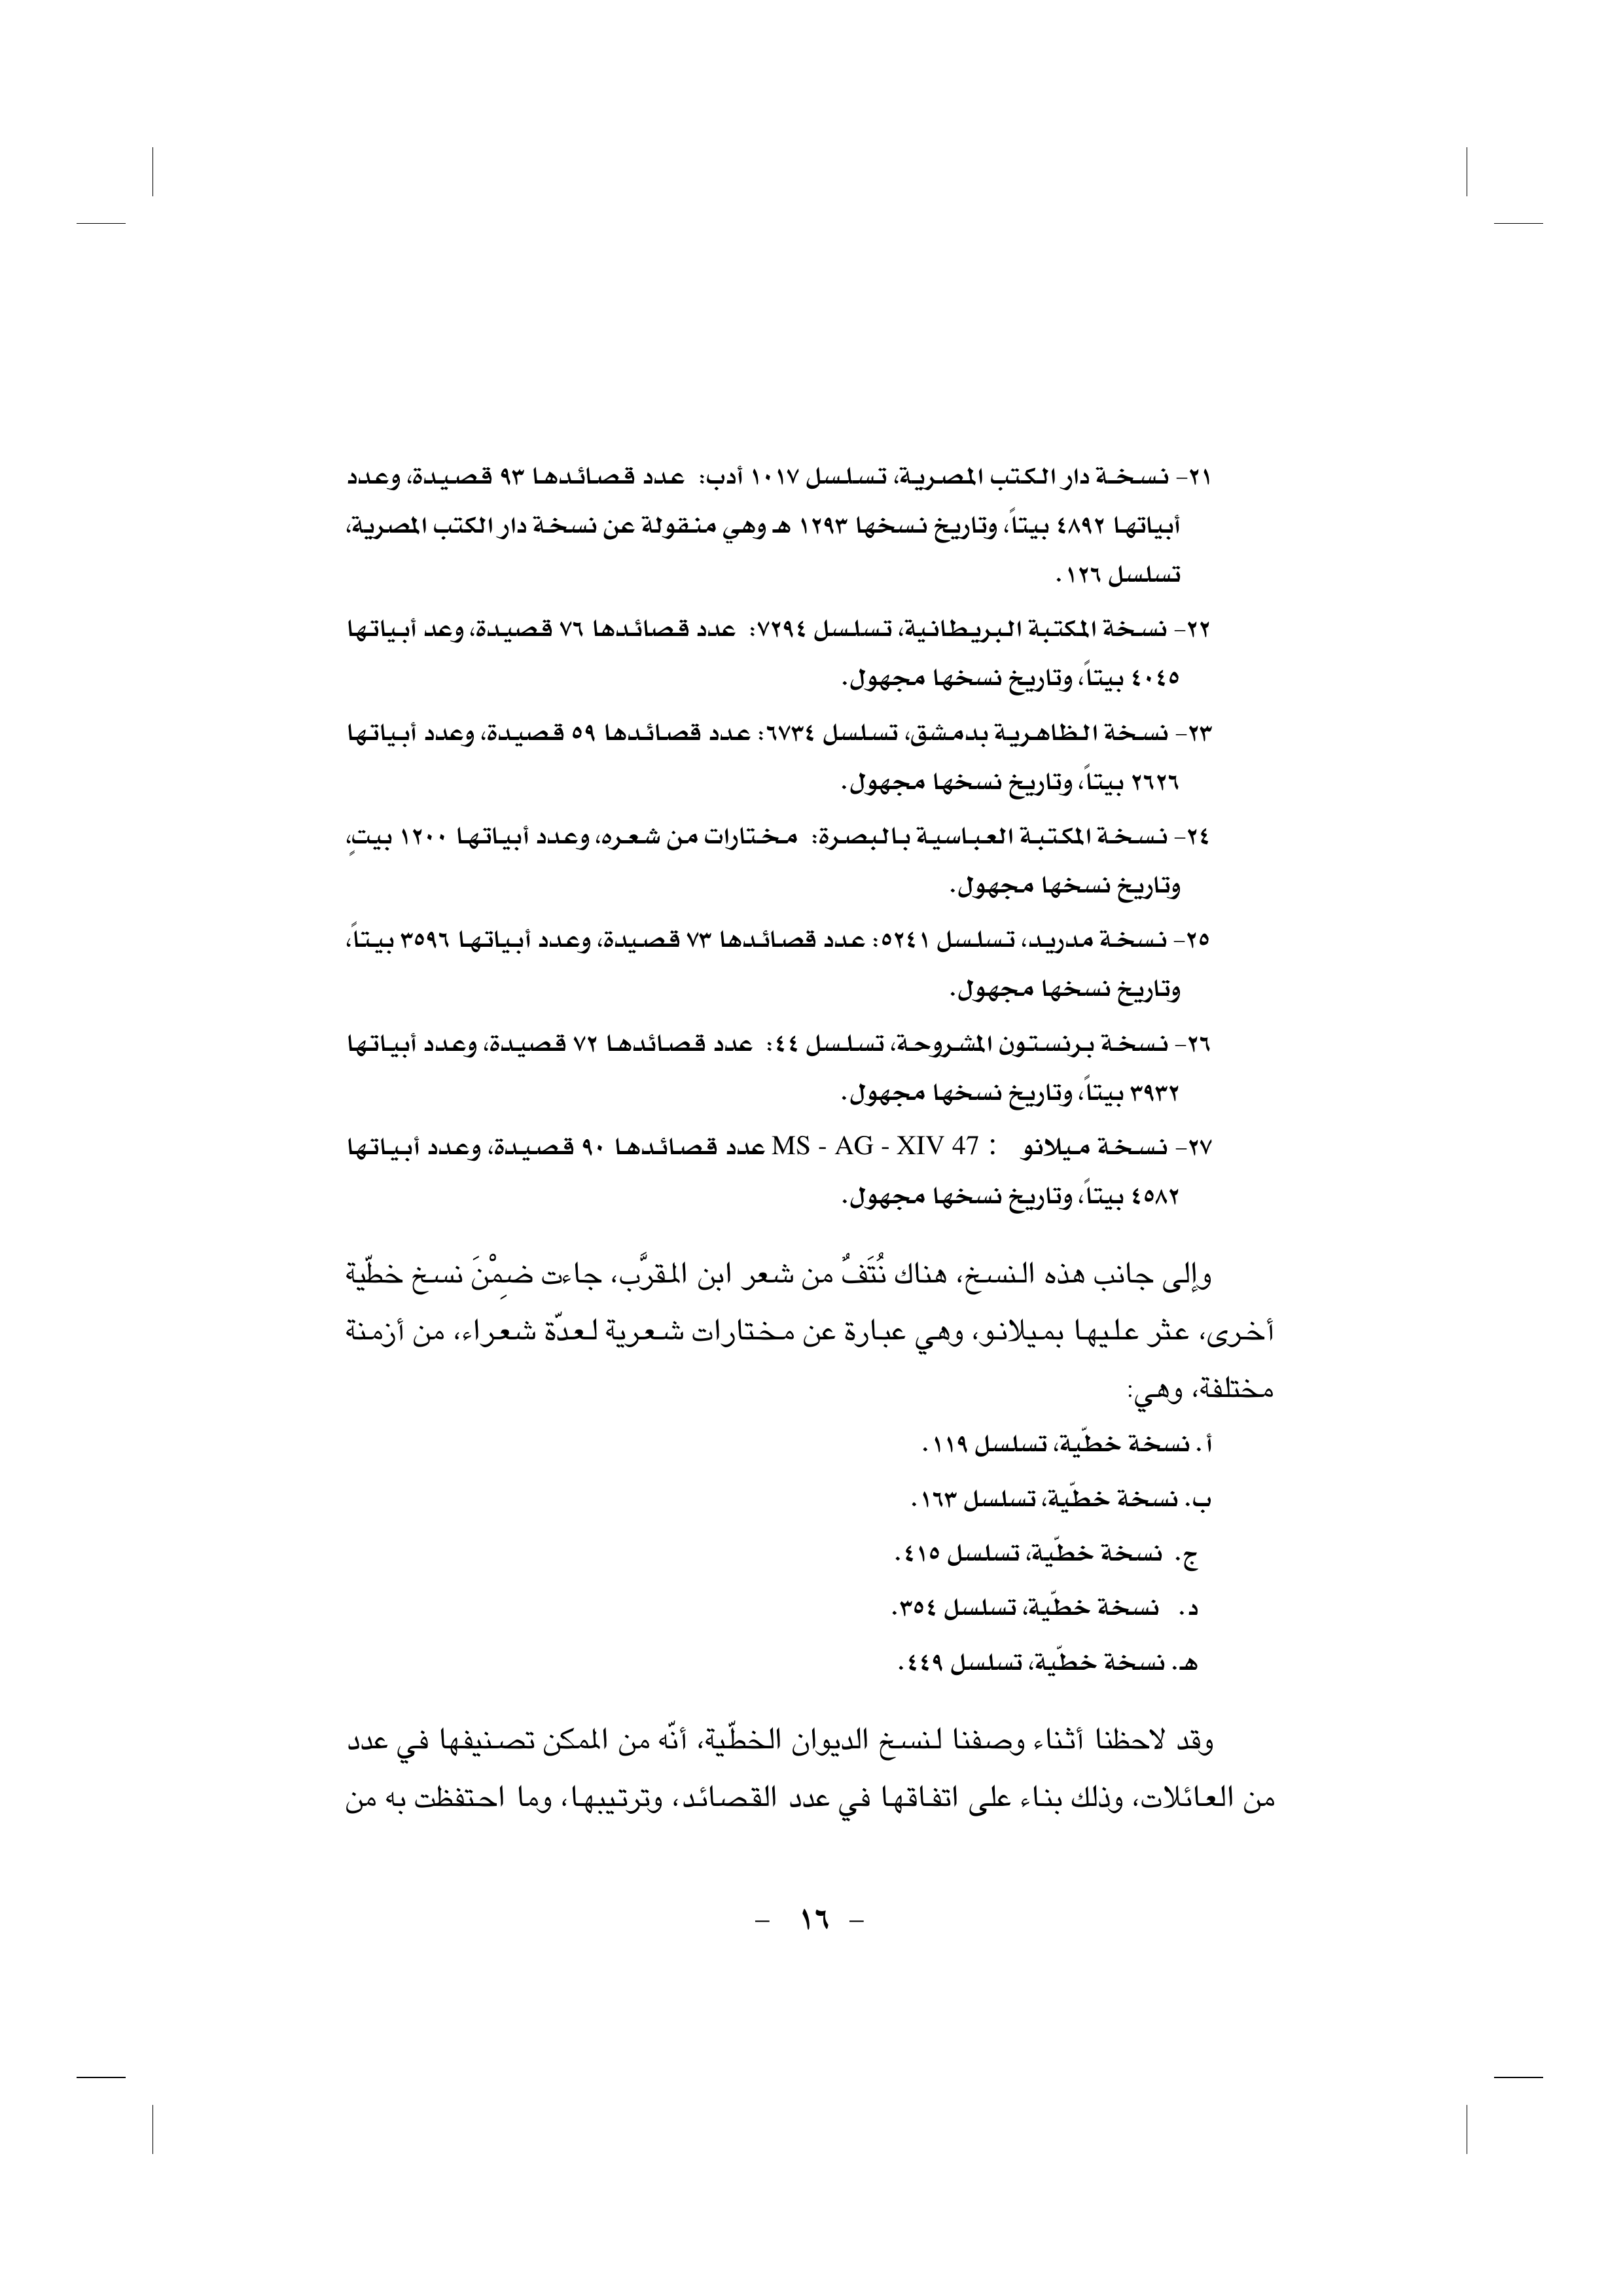 ٢١- نسخة دار الكتب المصرية، تسلسل ١٠١٧ أدب: عدد قصائدها ٩٣ قصيدة، وعدد
أبياتها ٤٨٩٢ بيتاً، وتاريخ نسخها ١٢٩٣ هـ وهي منقولة عن نسخة دار الكتب المصرية،
تسلسل ١٢٦.
٢٢- نسخة المكتبة البريطانية، تسلسل ٧٢٩٤: عدد قصائدها ٧٦ قصيدة، وعد أبياتها
٤٠٤٥ بيتاً، وتاريخ نسخها مجهول.
٢٣- نسخة الظاهرية بدمشق، تسلسل ٦٧٣٤: عدد قصائدها ٥٩ قصيدة، وعدد أبياتها
٢٦٢٦ بيتاً، وتاريخ نسخها مجهول.
٢٤- نسخة المكتبة العباسية بالبصرة: مختارات من شعره، وعدد أبياتها ١٢٠٠ بيتٍ،
وتاريخ نسخها مجهول.
٢٥- نسخة مدريد، تسلسل ٥٢٤١: عدد قصائدها ٧٣ قصيدة، وعدد أبياتها ٣٥٩٦ بيتاً،
وتاريخ نسخها مجهول.
٢٦- نسخة برنستون المشروحة، تسلسل ٤٤: عدد قصائدها ٧٢ قصيدة، وعدد أبياتها
٣٩٣٢ بيتاً، وتاريخ نسخها مجهول.
٢٧- نسخة ميلانو : MS - AG - XIV 47 عدد قصائدها ٩٠ قصيدة، وعدد أبياتها
٤٥٨٢ بيتاً، وتاريخ نسخها مجهول.
وإلى جانب هذه النسخ، هناك نُتَفٌ من شعر ابن المقرَّب، جاءت ضِمْنَ نسخ خطّية
أخرى، عثر عليها بميلانو، وهي عبارة عن مختارات شعرية لعدّة شعراء، من أزمنة
مختلفة، وهي:
أ. نسخة خطّية، تسلسل ١١٩.
ب. نسخة خطّية، تسلسل ١٦٣.
ج. نسخة خطّية، تسلسل ٤١٥.
د. نسخة خطّية، تسلسل ٣٥٤.
هـ. نسخة خطّية، تسلسل ٤٤٩.
وقد لاحظنا أثناء وصفنا لنسخ الديوان الخطّية، أنّه من الممكن تصنيفها في عدد
من العائلات، وذلك بناء على اتفاقها في عدد القصائد، وترتيبها، وما احتفظت به من
- ١٦ -